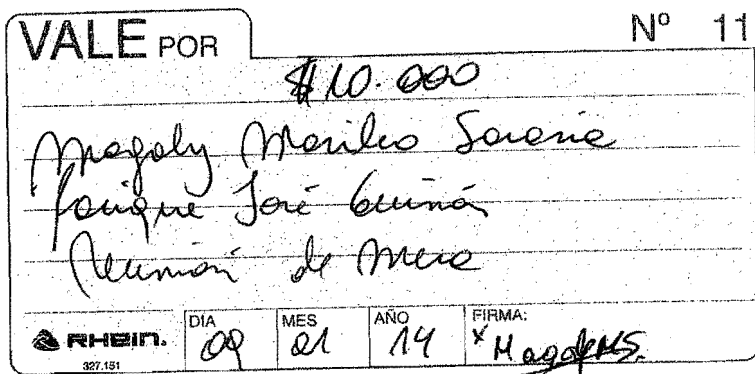 VALE POR
Nº 11
$10.000
Magaly Marileo Saravia
José
Reunión de Mesa
RHEIN.
327.151
DIA 09
MES 01
AÑO 14
FIRMA:
x MagalyMS.